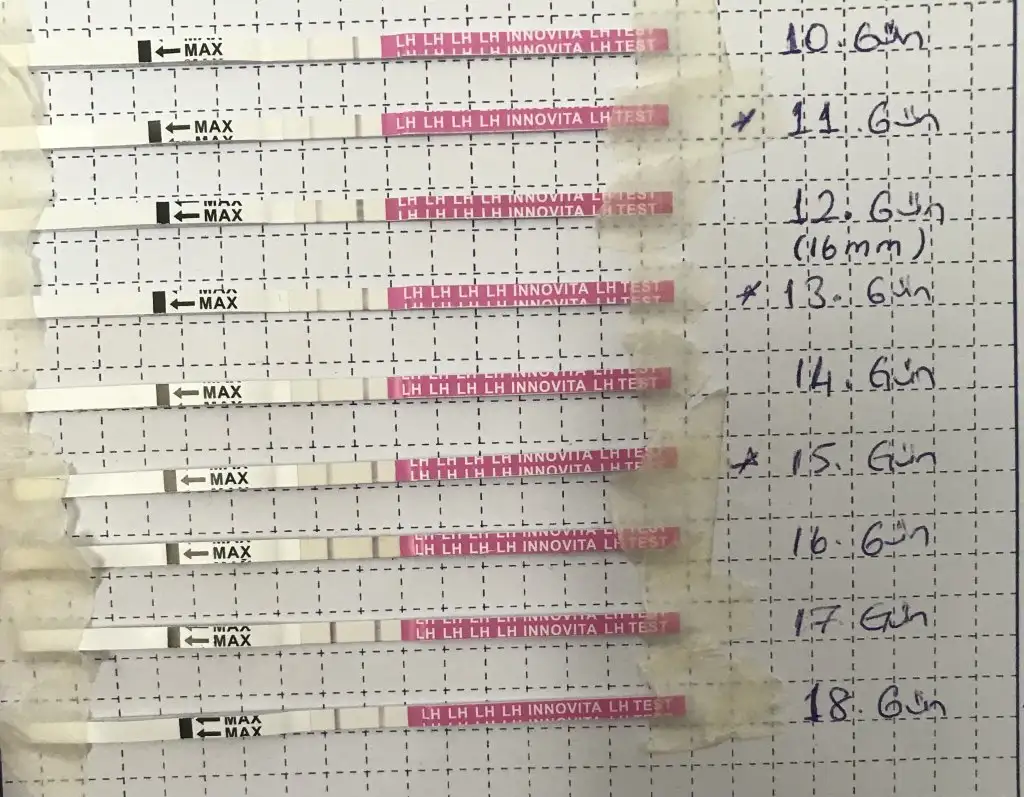 MAX LH LH LH LH INNOVITA LH TEST 10. Gün
MAX LH LH LH LH INNOVITA LH TEST * 11. Gün
MAX LH LH LH LH INNOVITA LH TEST 12. Gün
(16mm)
MAX LH LH LH LH INNOVITA LH TEST * 13. Gün
MAX LH LH LH LH INNOVITA LH TEST 14. Gün
MAX LH LH LH LH INNOVITA LH TEST * 15. Gün
MAX LH LH LH LH INNOVITA LH TEST 16. Gün
MAX LH LH LH LH INNOVITA LH TEST 17. Gün
MAX LH LH LH LH INNOVITA LH TEST 18. Gün